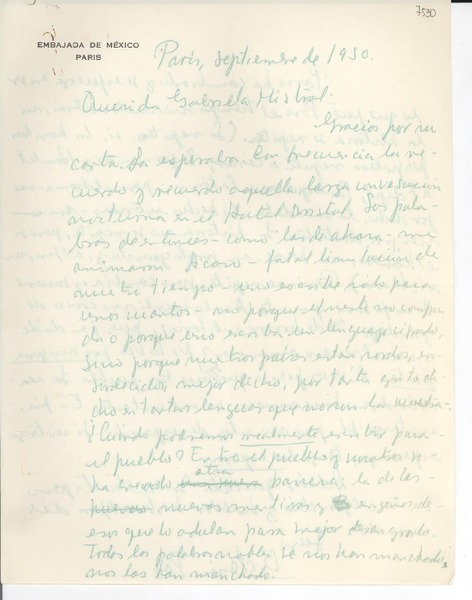 7530
EMBAJADA DE MÉXICO
PARIS
París, septiembre de 1950.
Querida Gabriela Mistral:
Gracias por su
carta. La esperaba. Con frecuencia la re-
cuerdo y recuerdo aquella larga conversación
nocturna en el Hotel Bristol. Sus pala-
bras de entonces —como las de ahora— me
animaron. Acaso —fatal limitación de
nuestro tiempo— uno escribe sólo para
unos cuantos — no porque el mente no compren-
da o porque uno escriba en lenguaje cifrado,
sino porque nuestros países están sordos, en-
sordecidos, mejor dicho, por tanto grito di-
cho en tantas lenguas que no son la nuestra.
¿Cuándo podremos realmente escribir para
el pueblo? Entre el pueblo y nosotros se
ha creado otra barrera: la de las
nuevas mentiras y engaños de
esos que lo adulan para mejor desangrarlo.
Todas las palabras nobles se nos han manchado,
nos las han manchado.